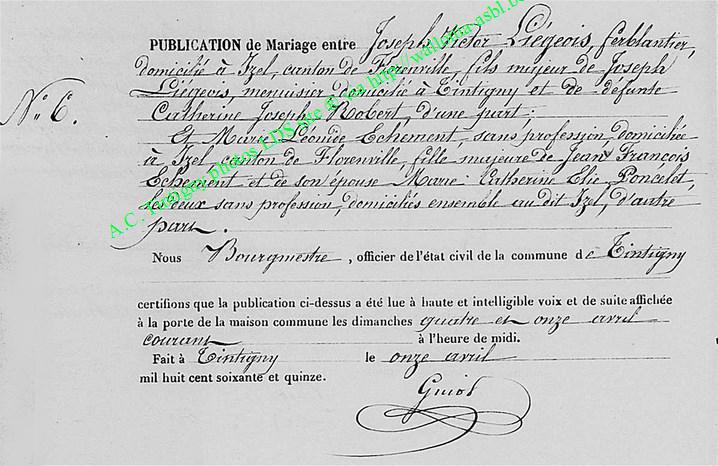 PUBLICATION de Mariage entre Joseph Victor Liégeois, ferblantier,
domicilié à Izel, canton de Florenville, fils majeur de Joseph
Liégeois, menuisier domicilié à Tintigny et de défunte
N° 6. Catherine Joseph Robert, d'une part;
Et Marie Léonide Echement, sans profession, domiciliée
à Izel, canton de Florenville, fille majeure de Jean François
Echement et de son épouse Marie Catherine Elie Poncelet,
les deux sans profession, domiciliés ensemble au dit Izel, d'autre
part.
Nous Bourgmestre, officier de l'état civil de la commune de Tintigny
certifions que la publication ci-dessus a été lue à haute et intelligible voix et de suite affichée
à la porte de la maison commune les dimanches quatre et onze avril
courant à l'heure de midi.
Fait à Tintigny le onze avril
mil huit cent soixante et quinze.
A.C. Tintigny photos LDS site via http://wallonia-asbl.be